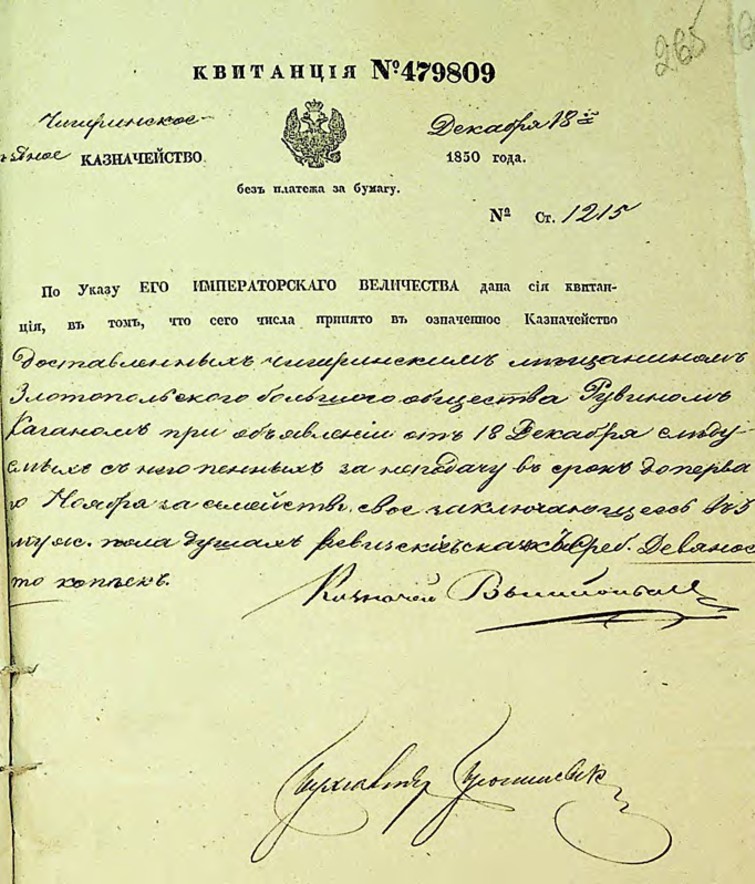 265
КВИТАНЦІЯ №479809
Чигиринское
КАЗНАЧЕЙСТВО
Декабря 18
1850 года.
безъ платежа за бумагу.
№ Ст. 1215
По Указу ЕГО ИМПЕРАТОРСКАГО ВЕЛИЧЕСТВА дана сія квитан-
ція, въ томъ, что сего числа принято въ означенное Казначейство
доставленныхъ чигиринскимъ мѣщаниномъ
Златопольского большого общества Рувиномъ
Каганомъ при объявленіи отъ 18 Декабря слѣду-
емыхъ съ него пенныхъ за неподачу въ срокъ до перва
го Ноября за семейство свое заключающееся въ 5
муж. пола душахъ сереб. Девянос
то копѣекъ.
Казначей
Бухгалтер